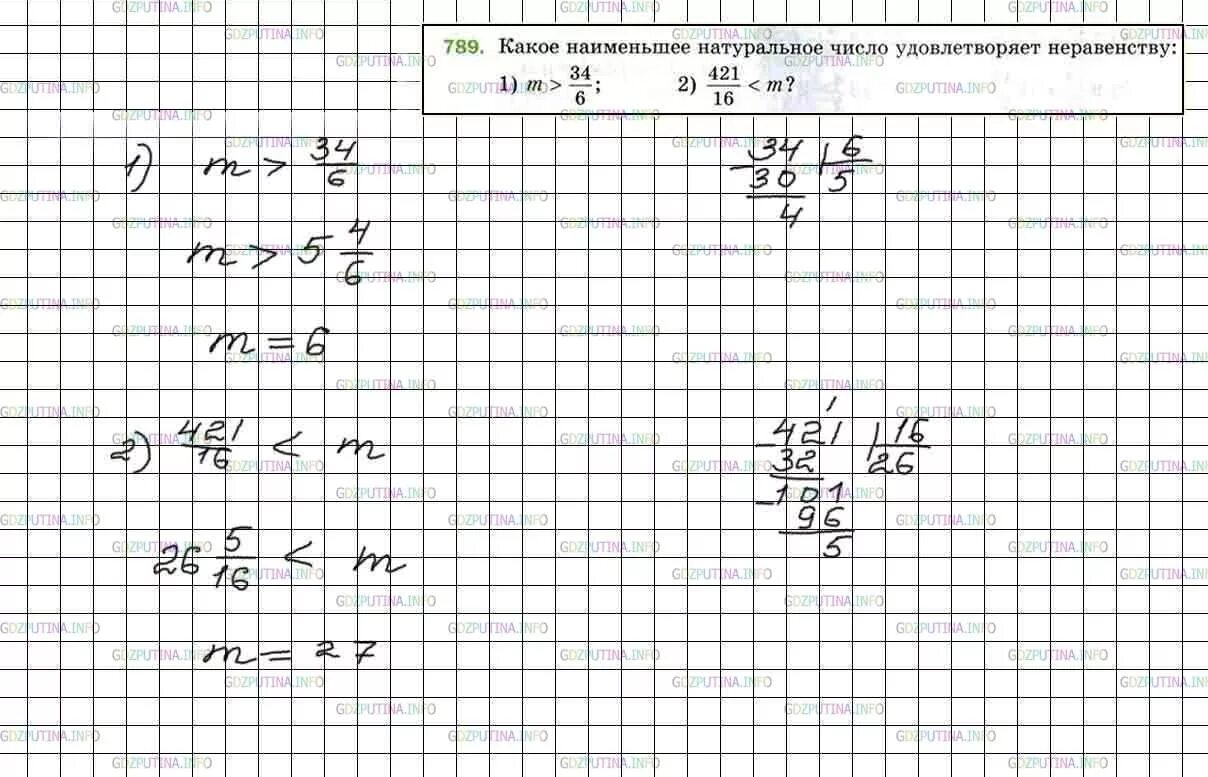 789. Какое наименьшее натуральное число удовлетворяет неравенству:
1) m > 34/6; 2) 421/16 < m?
1) m > 34/6
m > 5 4/6
m = 6
34 | 6
- 30 | 5
4
2) 421/16 < m
26 5/16 < m
m = 27
1
- 421 | 16
32 | 26
- 101
96
5
GDZPUTINA.INFO